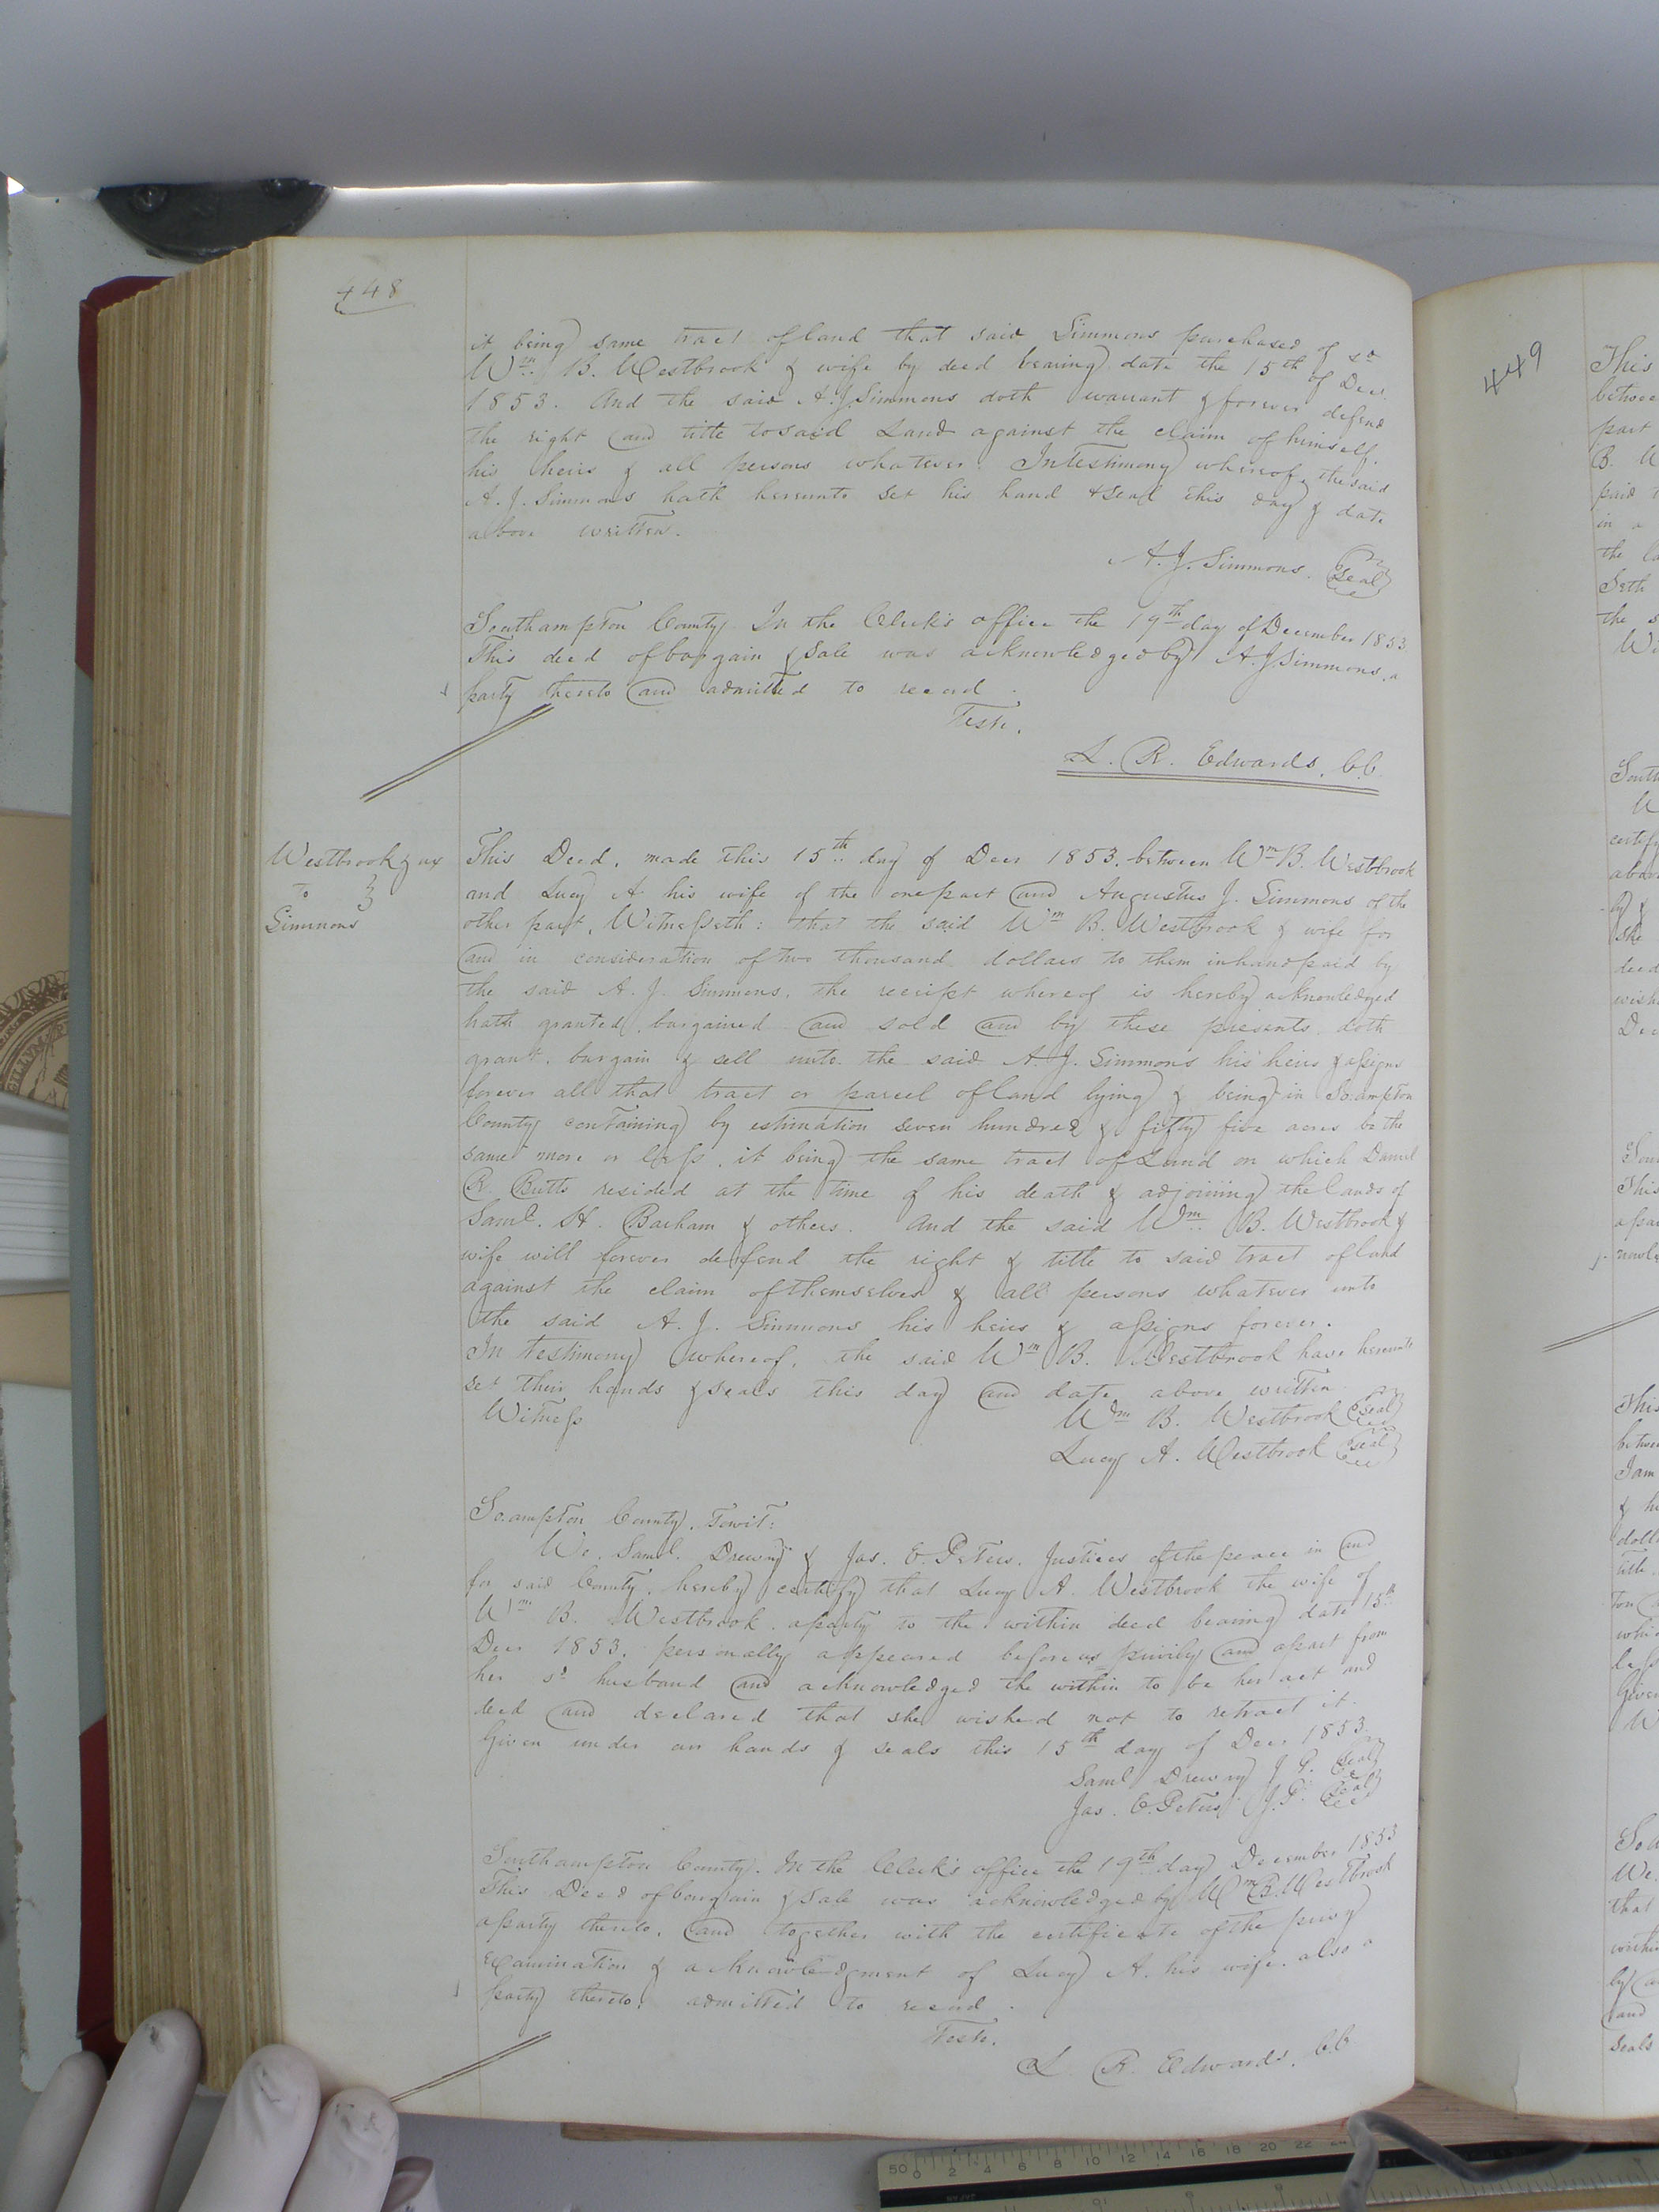 448
it being same tract of land that said Simmons purchased of sd
Wm. B. Westbrook & wife by deed bearing date the 15th of Decr
1853. And the said A. J. Simmons doth warrant & forever defend
the right and title to said Land against the claim of himself,
his heirs & all persons whatever. In testimony whereof, the said
A. J. Simmons hath hereunto set his hand & seal this day & date
above written.
A. J. Simmons. Seal
Southampton County In the Clerk's office the 19th day of December 1853
This deed of bargain & Sale was acknowledged by A. J. Simmons, a
party thereto and admitted to record.
Teste.
L. R. Edwards, C.C.
Westbrook & ux
to
Simmons
This Deed, made this 15th day of Decr 1853, between Wm B. Westbrook
and Lucy A his wife of the one part and Augustus J. Simmons of the
other part, Witnesseth: that the said Wm B. Westbrook & wife for
and in consideration of two thousand dollars to them in hand paid by
the said A. J. Simmons, the receipt whereof is hereby acknowledged
hath granted, bargained and sold and by these presents doth
grant, bargain & sell unto the said A. J. Simmons his heirs & assigns
forever all that tract or parcel of land lying & being in So.ampton
County containing by estimation seven hundred & fifty five acres be the
same more or less, it being the same tract of Land on which Daniel
R. Butts resided at the time of his death & adjoining the lands of
Saml. H. Barham & others. And the said Wm B. Westbrook &
wife will forever defend the right & title to said tract of land
against the claim of themselves & all persons whatever unto
the said A. J. Simmons his heirs & assigns forever.
In testimony whereof, the said Wm B. Westbrook have hereunto
set their hands & seals this day and date above written
Witness
Wm B. Westbrook Seal
Lucy A. Westbrook Seal
So.ampton County, Towit:
We, Saml. Drewry & Jas. E. Peters, Justices of the peace in and
for said County, hereby certify that Lucy A. Westbrook the wife of
Wm B. Westbrook, a party to the within deed bearing date 15th
Decr 1853, personally appeared before us privily and apart from
her sd husband and acknowledged the within to be her act and
deed and declared that she wished not to retract it.
Given under our hands & seals this 15th day of Decr 1853.
Saml Drewry J. P. Seal
Jas. E. Peters J. P. Seal
Southampton County. In the Clerk's office the 19th day December 1853
This Deed of bargain & Sale was acknowledged by Wm B. Westbrook
a party thereto, and together with the certificate of the privy
Examination & acknowledgment of Lucy A. his wife, also a
party thereto, admitted to record.
Teste.
L R. Edwards, C.C
449
This
part
B. W
paid
in a
the
Seth
the s
above
she
deed
This
This
Jam
Given
We.
that
and
seals
50
0 2 4 6 8 10 12 14 16 18 20 22 24